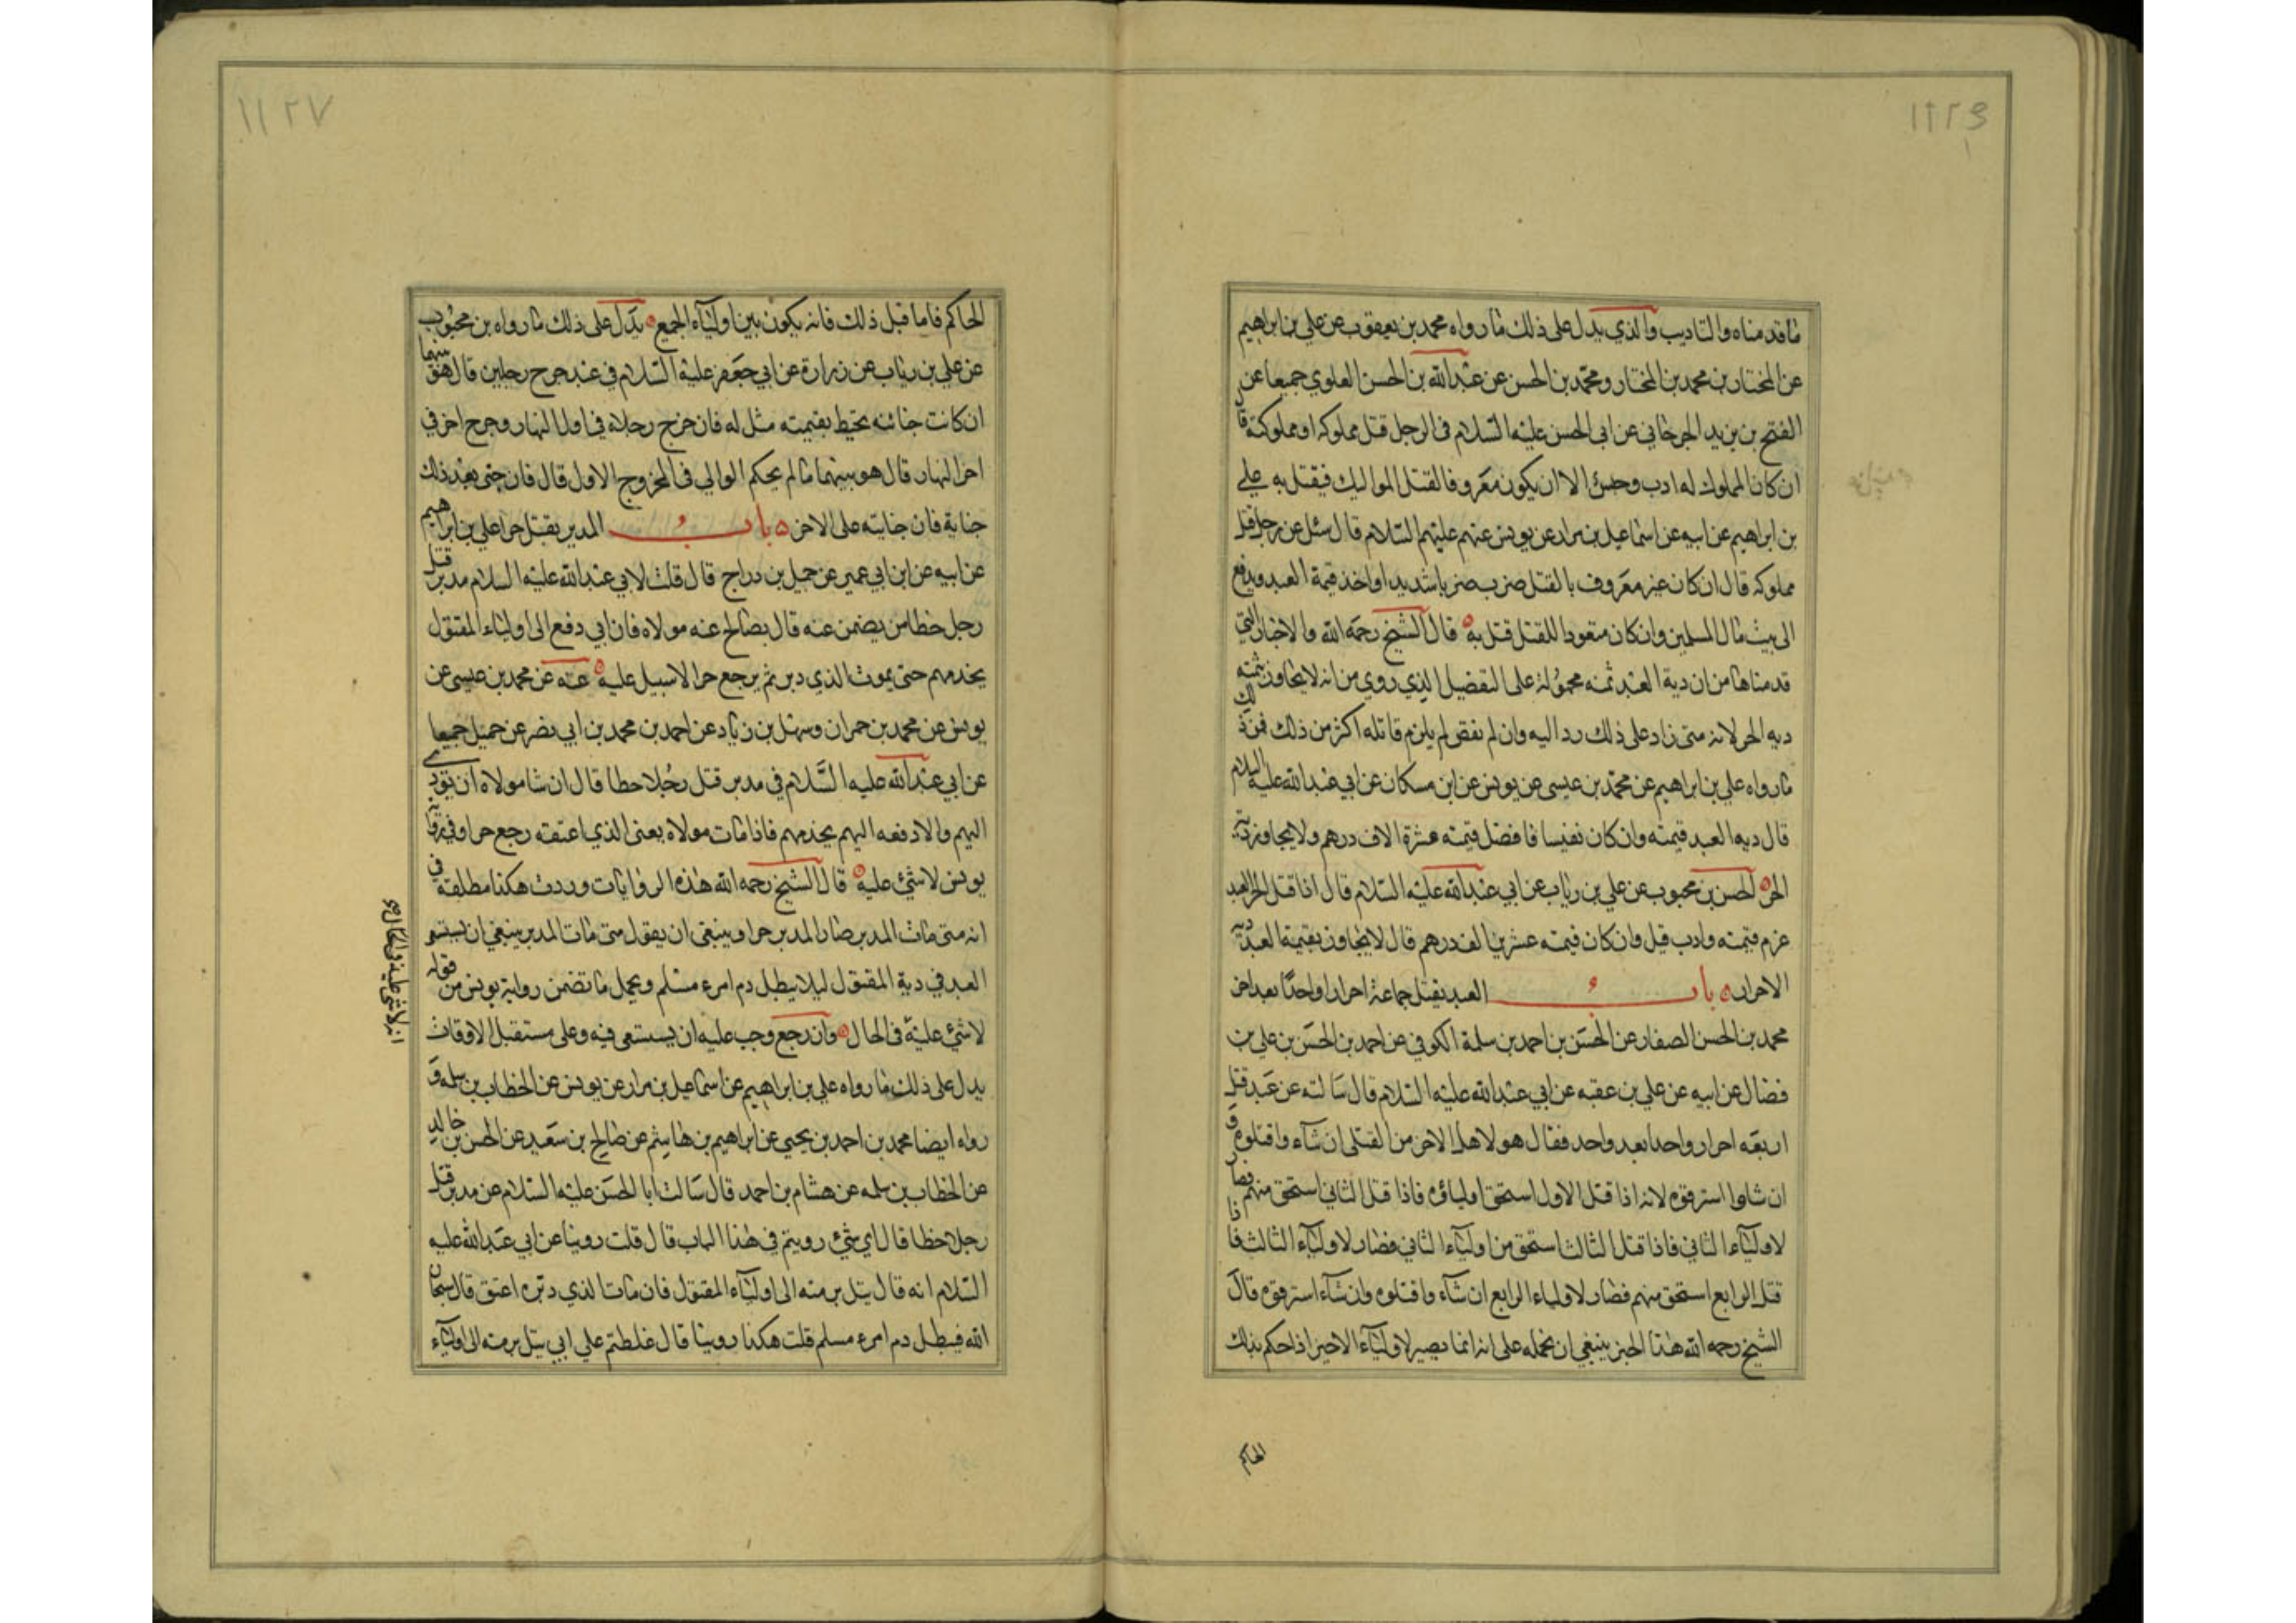 ماقدمناه والتاديب والذي يدل على ذلك مارواه محمد بن يعقوب عن علي بن ابراهيم
عن المختار بن محمد بن المختار ومحمد بن الحسن عن عبدالله بن الحسن العلوي جميعا عن
الفتح بن يزيد الجرجاني عن ابي الحسن عليه السلام في الرجل قتل مملوكه او مملوكته قال
ان كان المملوك له ادب وحبس الا ان يكون معروفا لقتل المواليك فيقتل به علي
بن ابراهيم عن ابيه عن اسماعيل بن مرار عن يونس عنهم عليهم السلام قال سئل عن رجل قتل
مملوكه قال ان كان غير معروف بالقتل ضرب ضربا شديدا واخذ قيمة العبد ويدفع
الى بيت مال المسلمين وان كان متعودا للقتل قتل به قال الشيخ رحمه الله والاخبار التي
قدمناها من ان دية العبد ثمنه محمولة على التفصيل الذي روي من انه لايجاوز بثمنه
ديه الحر لانه متى زاد على ذلك رد اليه وان لم نقص لم يلزم قاتله اكثر من ذلك فمن ذلك
مارواه علي بن ابراهيم عن محمد بن عيسى عن يونس عن ابن مسكان عن ابي عبدالله عليه السلام
قال ديه العبد قيمته وان كان نفيسا فافضل قيمته عشرة الاف درهم ولايجاوز به دية
الحر الحسن بن محبوب عن علي بن رياب عن ابي عبدالله عليه السلام قال اذا قتل الحر العبد
غرم قيمته وادب قيل وان كان قيمته عشرين الف درهم قال لايجاوز بقيمة العبد دية
الاحرار باب العبد يقتل جماعة احرار واحدا بعد اخر
محمد بن الحسن الصفار عن الحسن بن احمد بن سلمة الكوفي عن احمد بن الحسن بن علي بن
فضال عن ابيه عن علي بن عقبه عن ابي عبدالله عليه السلام قال سالته عن عبد قتل
اربعه احرار واحدا بعد واحد فقال هو لاهل الاخر من القتلى ان شاء واقتلوه و
ان شاوا استرقوه لانه اذا قتل الاول استحق اولياؤه فاذا قتل الثاني استحق منهم فصار
لاولياء الثاني فاذا قتل الثالث استحق من اولياء الثاني فصار لاولياء الثالث فاذا
قتل الرابع استحق منهم فصار لاولياء الرابع ان شاء واقتلوه وان شاء استرقوه قال
الشيخ رحمه الله هذا الخبر ينبغي ان نحمله على انه انما يصير لاولياء الاخير اذا حكم بذلك
الحاكم
الحاكم فاما قبل ذلك فانه يكون بين اولياء الجميع يدل على ذلك مارواه بن محبوب
عن علي بن رياب عن زرارة عن ابي جعفر عليه السلام في عبد جرح رجلين قال هو بينهما
ان كانت جنايته تحيط بقيمته مثل له فان خرج رجلا في اول النهار وجرح اخر في
اخر النهار قال هو بينهما مالم يحكم الوالي في المخروج الاول قال فان جنى بعد ذلك
جناية فان جنايته على الاخر باب المدبر يقتل حرا علي بن ابراهيم
عن ابيه عن ابن ابي عمير عن جميل بن دراج قال قلت لابي عبدالله عليه السلام مدبر قتل
رجل خطا من يضمن عنه قال يصالح عنه مولاه فان ابي دفع الى اولياء المقتول
يخدمهم حتى يموت الذي دبر ثم يرجع حرا لاسبيل عليه عنه عن محمد بن عيسى عن
يونس عن محمد بن حمران وسهل بن زياد عن احمد بن محمد بن ابي نصر عن جميل جميعا
عن ابي عبدالله عليه السلام في مدبر قتل رجلا خطا قال ان شا مولاه ان يودي
اليهم والا دفعه اليهم يخدمهم فاذا مات مولاه يعنى الذي اعتقه رجع حرا وفي رواية
يونس لاشئ عليه قال الشيخ رحمه الله هذه الروايات وردت هكذا مطلقة في
انه متى مات المدبر صار المدبر حرا وينبغى ان يقول متى مات المدبر ينبغي ان يستسعي
العبد في دية المقتول ليلا يبطل دم امرء مسلم ويحمل ماتضمن رواية يونس من قوله
لاشئ عليه في الحال وان رجع وجب عليه ان يستسعى فيه وعلى مستقبل الاوقات
يدل على ذلك مارواه علي بن ابراهيم عن اسماعيل بن مرار عن يونس عن الخطاب بن سلمه و
رواه ايضا محمد بن احمد بن يحيى عن ابراهيم بن هاشم عن صالح بن سعيد عن الحسن بن خالد
عن الخطاب بن سلمه عن هشام بن احمد قال سالت ابا الحسن عليه السلام عن مدبر قتل
رجلا خطا قال اي شئ رويتم في هذا الباب قال قلت روينا عن ابي عبدالله عليه
السلام انه قال يتل برمته الى اولياء المقتول فان مات الذي دبره اعتق قال سبحان
الله فيبطل دم امرء مسلم قلت هكذا روينا قال غلطتم علي ابي يتل برمته الى اولياء